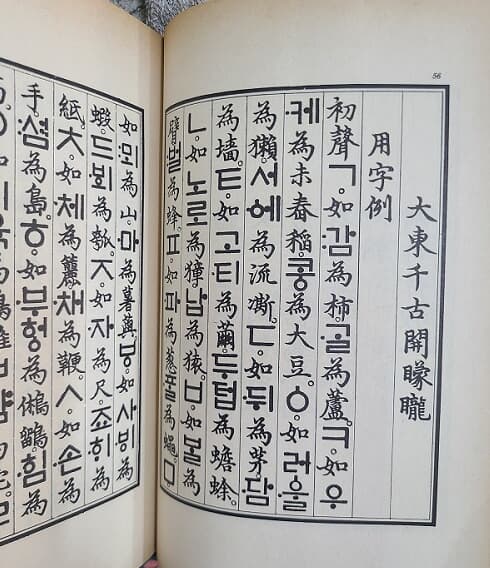 56
大東千古開矇矓
用字例
初聲ㄱ。如감為柿。ᄀᆞᆯ為蘆。ㅋ。如우
케為未舂稻。콩為大豆。ㆁ。如러울
為獺。서에為流凘。ㄷ。如뒤為茅。담
為墻。ㅌ。如고티為繭。두텁為蟾蜍。
ㄴ。如노로為獐。납為猿。ㅂ。如ᄇᆞᆯ為
臂。벌為蜂。ㅍ。如파為葱。ᄑᆞᆯ為蠅。ㅁ
如뫼為山。마為薯藇。ㅸ。如사ᄫᅵ為
蝦。드ᄫᅴ為瓠。ㅈ。如자為尺。죠ᄒᆡ為
紙。ㅊ。如체為籭。채為鞭。ㅅ。如손為
手。셤為島。ㅎ。如부헝為鵂鶹。힘為